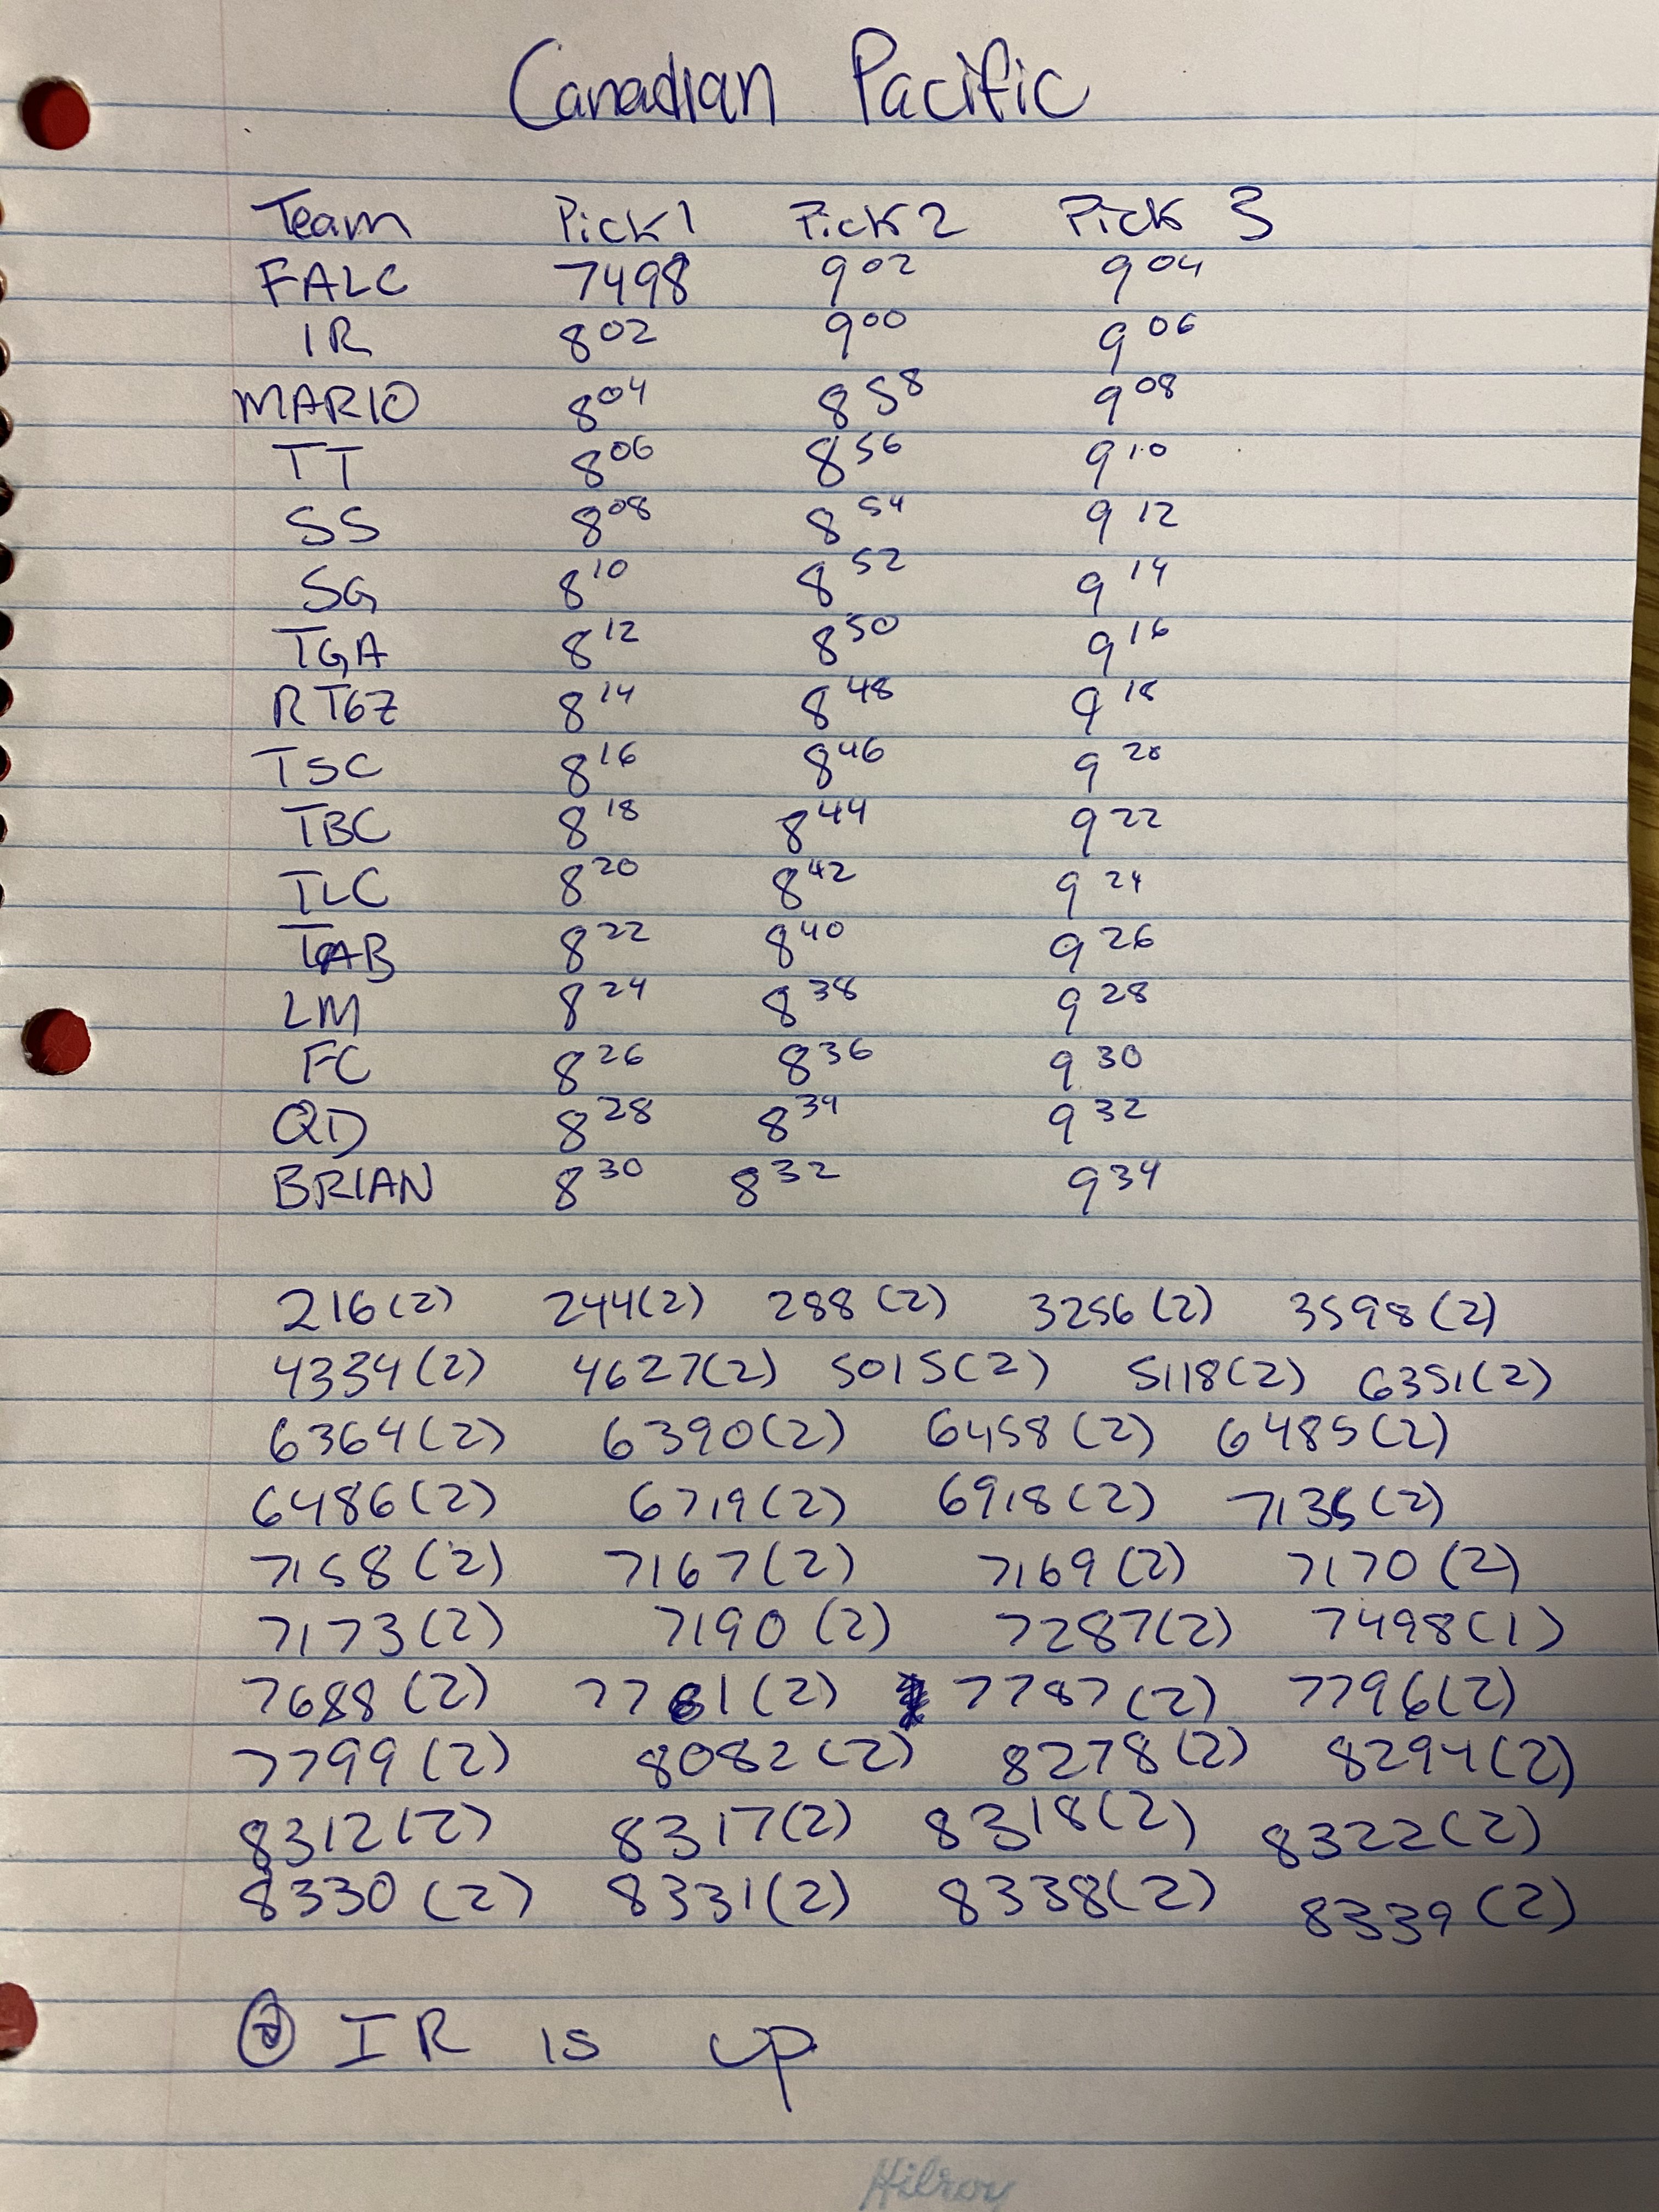 Canadian Pacific
Team Pick 1 Pick 2 Pick 3
FALC 7498 902 904
IR 802 900 906
MARIO 804 858 908
TT 806 856 910
SS 808 854 912
SG 810 852 914
TGA 812 850 916
RTGZ 814 848 918
TSC 816 846 920
TBC 818 844 922
TLC 820 842 924
TAB 822 840 926
LM 824 838 928
FC 826 836 930
QD 828 834 932
BRIAN 830 832 934
216(2) 244(2) 288(2) 3256(2) 3598(2)
4334(2) 4627(2) 5015(2) 5118(2) 6351(2)
6364(2) 6390(2) 6458(2) 6485(2)
6486(2) 6719(2) 6918(2) 7135(2)
7158(2) 7167(2) 7169(2) 7170(2)
7173(2) 7190(2) 7287(2) 7498(1)
7688(2) 7781(2) 7787(2) 7796(2)
7799(2) 8082(2) 8278(2) 8294(2)
8312(2) 8317(2) 8318(2) 8322(2)
8330(2) 8331(2) 8338(2) 8339(2)
IR is up
Hilroy